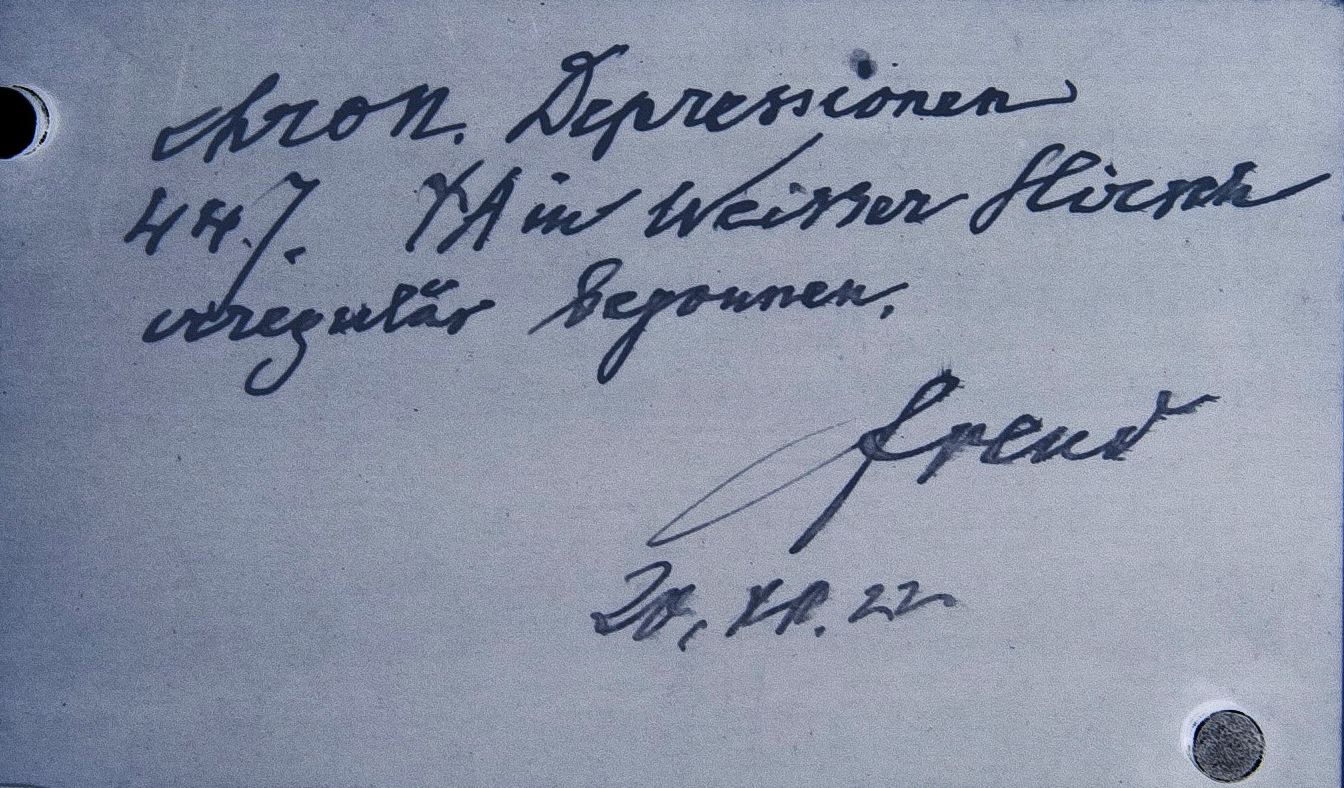 chron. Depressionen
44 J. ΨA in Weisser Hirsch
irregulär begonnen.
Freud
20. XII. 22